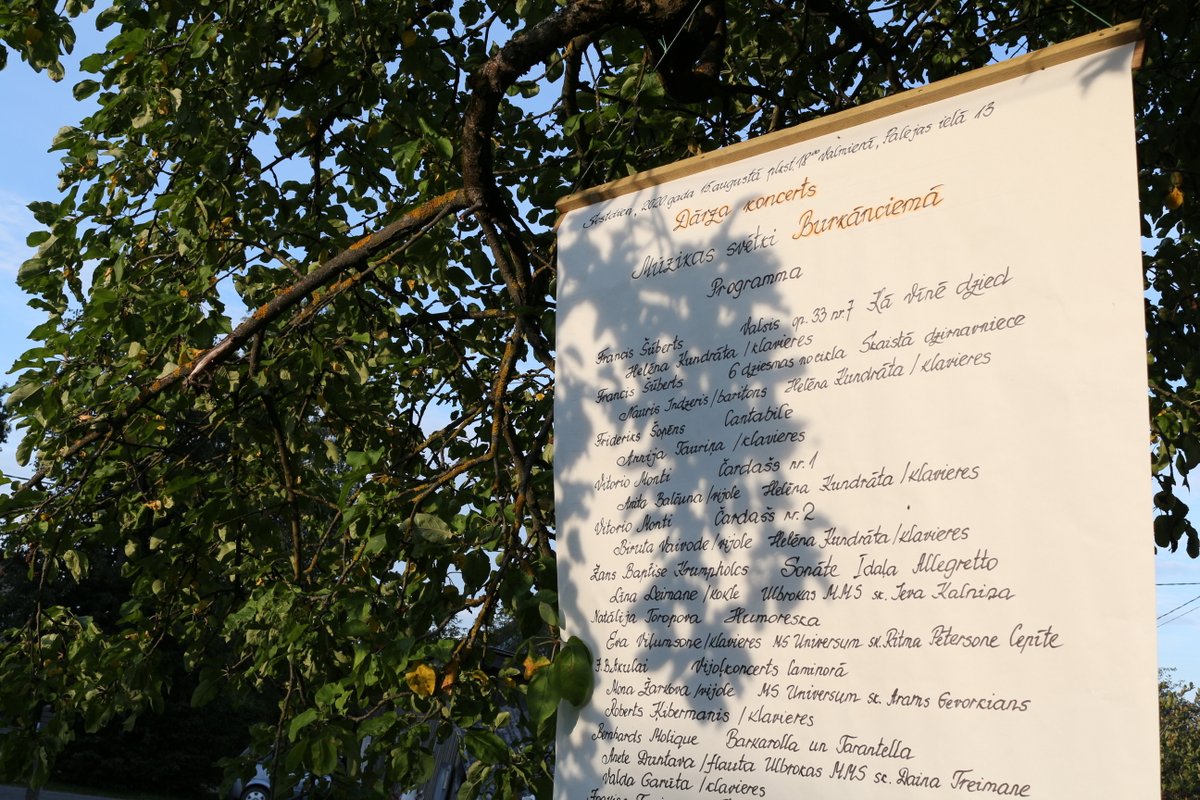 Sestdien, 2020. gada 15. augustā plkst. 18⁰⁰ Valmierā, Palejas ielā 13
Dārza koncerts
Mūzikas svētki Burkānciemā
Programma
Francis Šūberts Valsis op. 33 nr. 7 Kā Vīnē dzied
Helēna Kundrāta /klavieres
Francis Šūberts 6 dziesmas no cikla Skaistā dzirnavniece
Nauris Indzeris/baritons Helēna Kundrāta /klavieres
Frideriks Šopēns Cantabile
Annija Tauriņa /klavieres
Vitorio Monti Čardašs nr. 1
Anita Balčuna/vijole Helēna Kundrāta /klavieres
Vitorio Monti Čardašs nr. 2
Biruta Vaivode/vijole Helēna Kundrāta/klavieres
Žans Baptise Krumpholcs Sonāte I daļa Allegretto
Līna Leimane /kokle Ulbrokas MMS sk. Ieva Kalniņa
Natālija Toropova Humoreska
Eva Viļumsone/klavieres MS Universum sk. Ritma Pētersone Cepīte
Vijoļkoncerts laminorā
Nona Žarkova/vijole MS Universum sk. Arams Gevorkians
Roberts Ķibermanis /klavieres
Bernhards Molique Barkarolla un Tarantella
Anete Druntava/flauta Ulbrokas MMS sk. Daina Treimane
Valda Garūta/klavieres